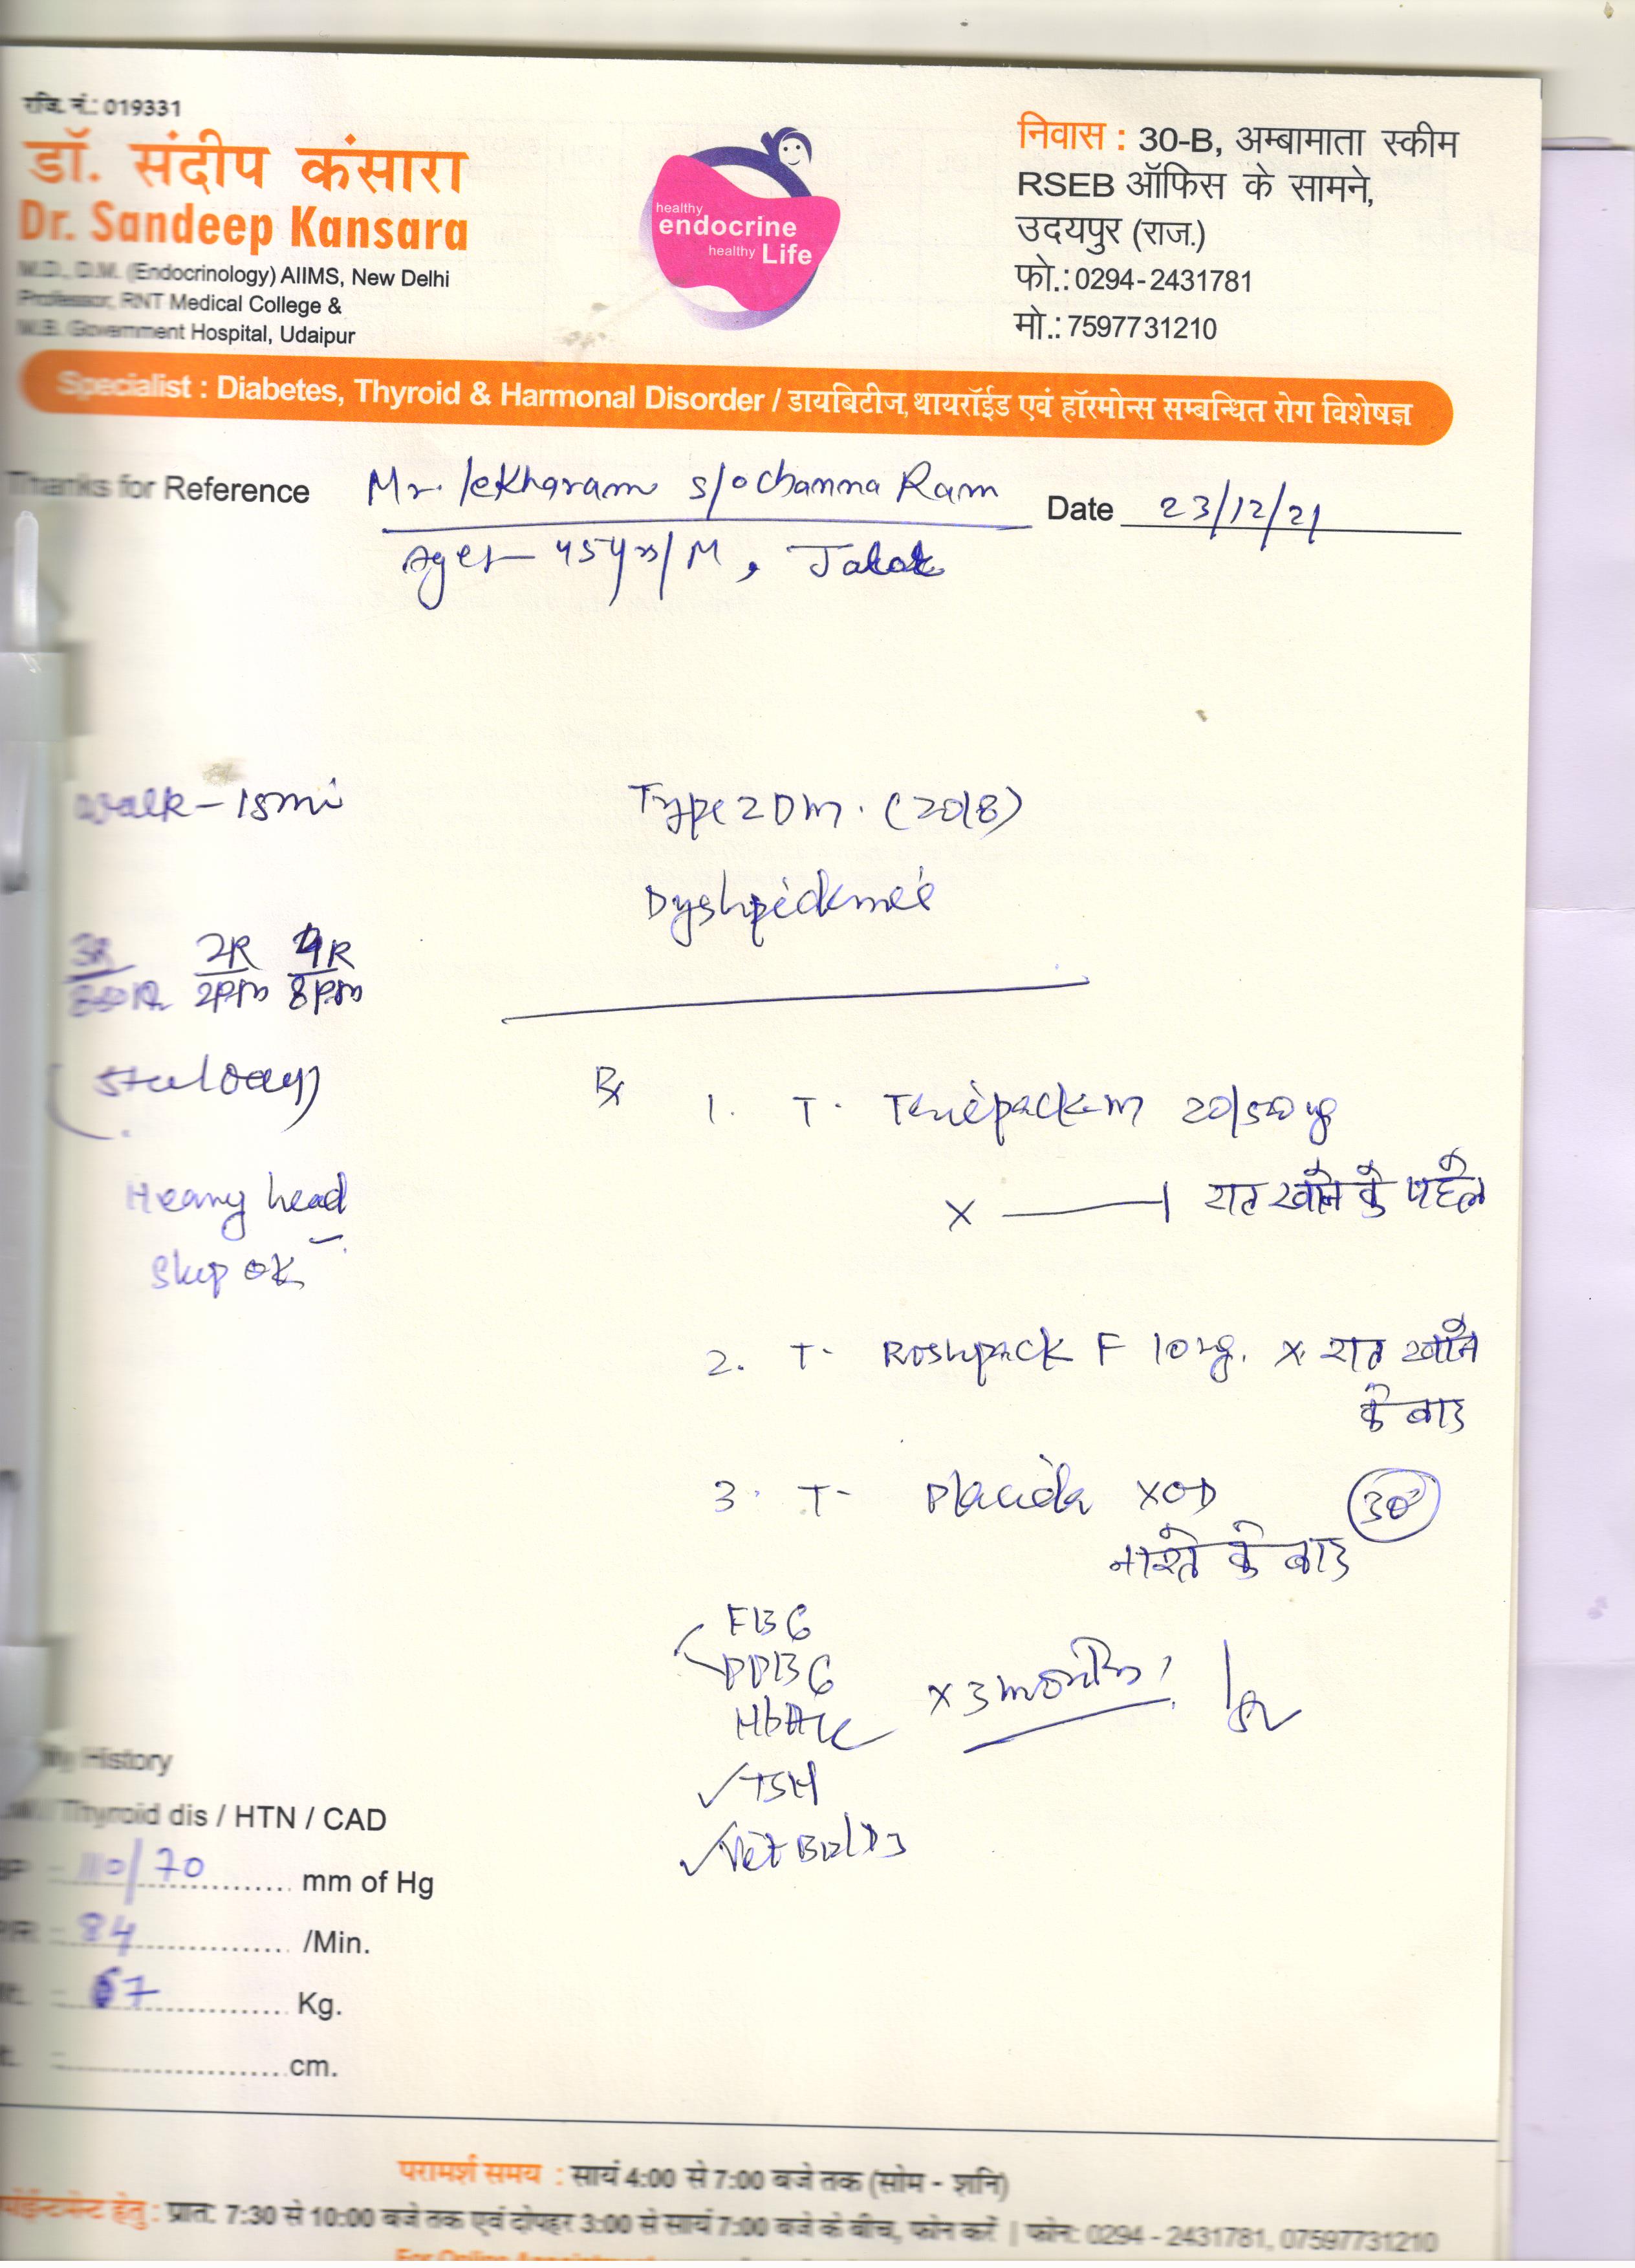 रजि. नं.: 019331
डॉ. संदीप कंसारा
Dr. Sandeep Kansara
M.D., D.M. (Endocrinology) AIIMS, New Delhi
Professor, RNT Medical College &
M.B. Government Hospital, Udaipur
healthy
endocrine
healthy Life
निवास : 30-B, अम्बामाता स्कीम
RSEB ऑफिस के सामने,
उदयपुर (राज.)
फो.: 0294-2431781
मो.: 7597731210
Specialist : Diabetes, Thyroid & Harmonal Disorder / डायबिटीज, थायरॉईड एवं हॉरमोन्स सम्बन्धित रोग विशेषज्ञ
Thanks for Reference Mr. lekharam s/o channa Ram Date 23/12/21
Age - 45 yrs/M,
walk - 15 mi
Type 2 DM. (2018)
3R 2R 4R
2PM 8PM
Rx 1. T. 20/500 mg
x 1 रात खाने के पहले
Heavy head
Sleep OK
2. T- F 10 mg. x रात खाने
के बाद
3. T- Placida x OD 30
नाश्ते के बाद
FBG
PPBG
HbA1c x 3 months
TSH
Vit B12/D3
History
Thyroid dis / HTN / CAD
BP - 110/70 mm of Hg
84 /Min.
67 Kg.
cm.
परामर्श समय : सायं 4:00 से 7:00 बजे तक (सोम - शनि)
हेतु : प्रात: 7:30 से 10:00 बजे तक एवं दोपहर 3:00 से सायं 7:00 बजे के बीच, फोन करें | फोन: 0294 - 2431781, 07597731210
For Online